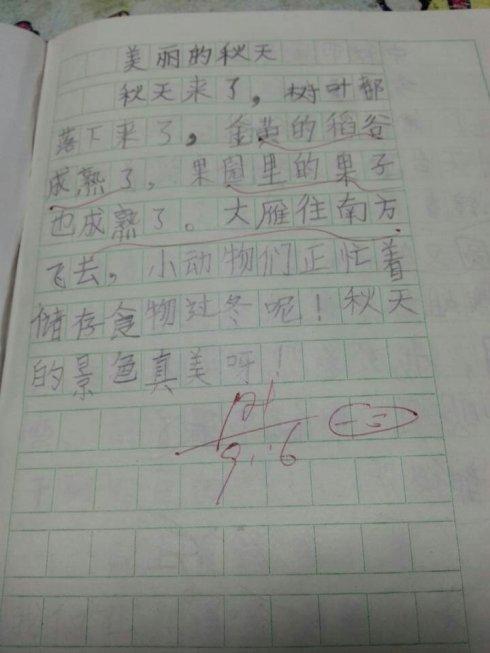 美丽的秋天
秋天来了，树叶都
落下来了，金黄的稻谷
成熟了，果园里的果子
也成熟了。大雁往南方
飞去，小动物们正忙着
储存食物过冬呢！秋天
的景色真美呀！
9.6